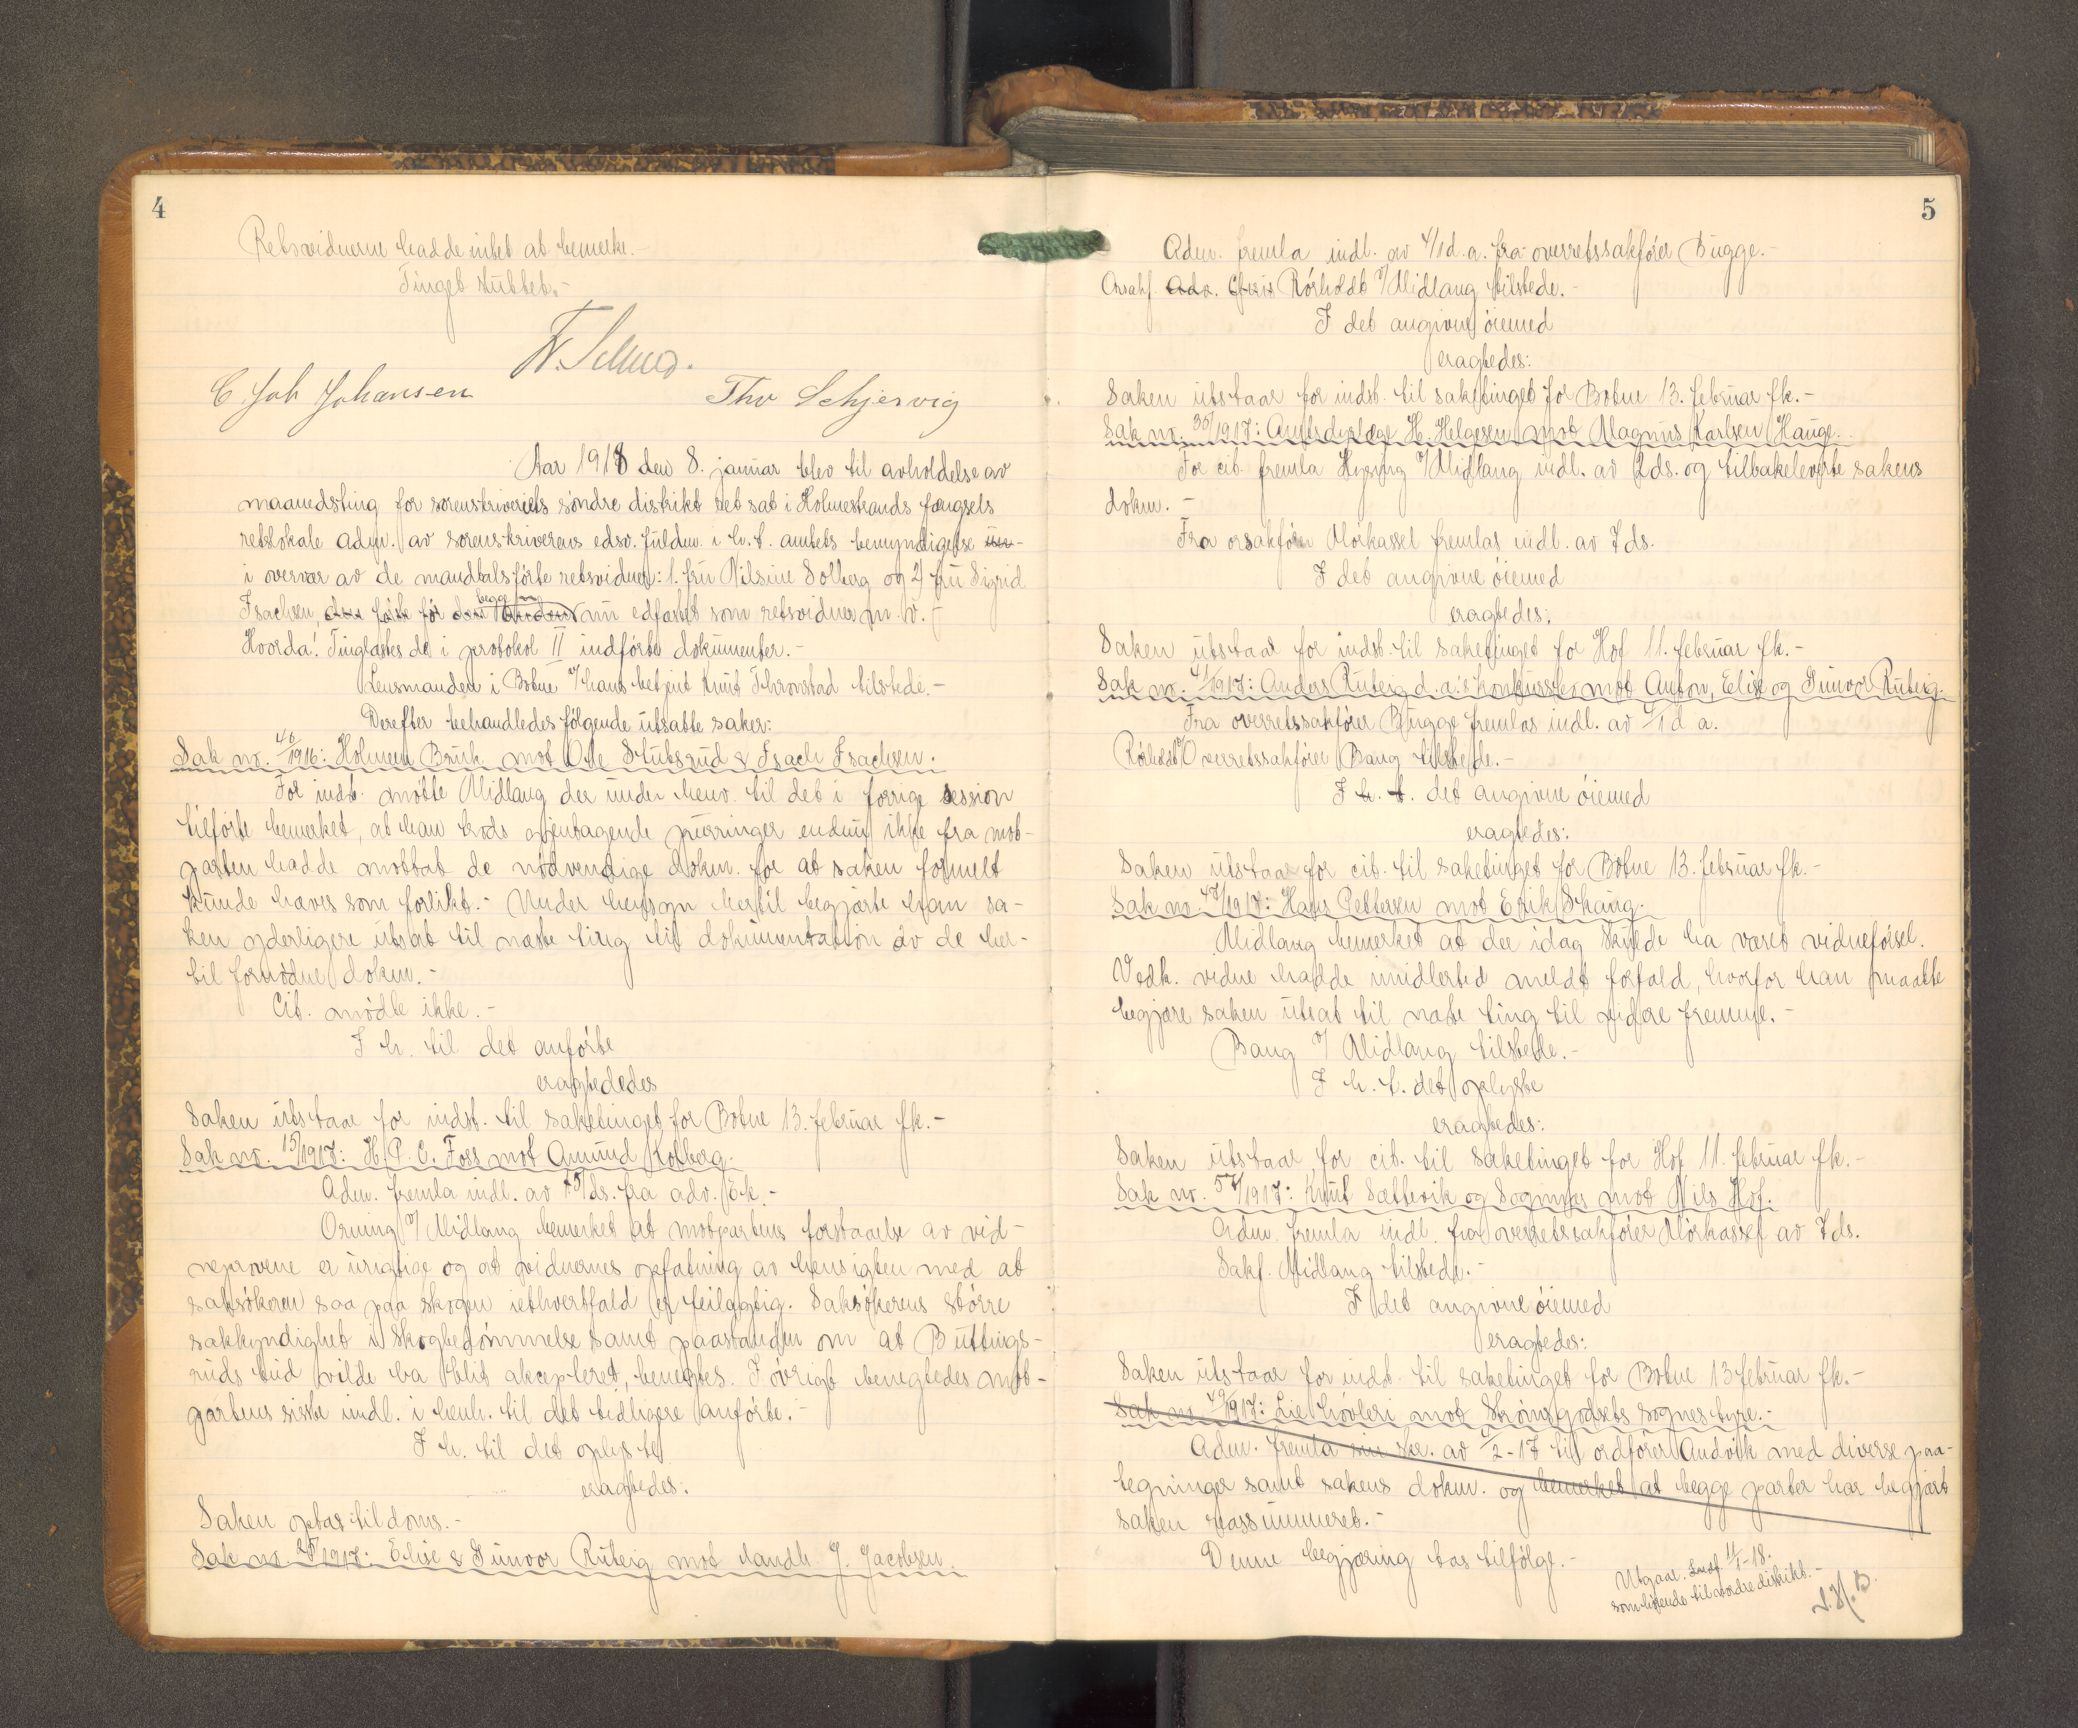 4
Retsvidnerne hadde intet at bemerke.-
Tinget sluttet.-
C. Joh Johansen
Thv Schjervig
Aar 1918 den 8. januar blev til avholdelse av
maanedsting for sorenskriveriets søndre distrikt ret sat i Holmestrands fængsels
retslokale adm. av sorenskriverens edsv. fuldm. i h. t. amtets bemyndigelse
i overvær av de mandtalsførte retsvidner: 1. fru Nilsine Solberg og 2) fru Sigrid
Isachsen, den første før den anden begge nu edfæstet som retsvidner m. v. -
Hvorda: Tinglæstes de i protokol II indførte dokumenter.-
Lensmanden i Botne v/ hans betjent Knut Throvstad tilstede.-
Derefter behandledes følgende utsatte saker:
Sak nr. 46/1916: Holmen Bruk mot Ole Stubsrud & Isach Isachsen.
For indst. møtte Midlang der under henv. til det i forrige session
tilførte bemerket, at han trods gjentagende purringer endnu ikke fra mot-
parten hadde mottat de nødvendige dokm. for at saken formelt
kunde hæves som forlikt.- Under hensyn hertil begjærte han sa-
ken yderligere utsat til næste ting til dokumentation av de her-
til fornødne dokm.-
Cit. mødte ikke.-
I h. til det anførte
eragtededes
Saken utstaar for indst. til saketinget for Botne 13. februar fk.-
Sak nr. 15/1917: H. P. C. Foss mot Amund Kolberg.
Adm. fremla indl. av 75/ds. fra adv. Ek.-
Orning v/ Midlang bemerket at motpartens forstaaelse av vid-
neprovene er urigtige og at vidnernes opfatning av hensigten med at
saksøkeren saa paa skogen iethvertfald er feilagtig. Saksøkerens større
sakkyndighet i skogbedømmelse samt paastanden om at Buttings-
ruds bud vilde ha blit akceptert, benegtes. I øvrigt benegtedes mot-
partens siste indl. i henh. til det tidligere anførte.-
I h. til det oplyste
eragtedes:
Saken optas til doms.-
Sak nr. 25/1917: Elise & Gunvor Ruteig mot Landh. J. Jacobsen.
5
Adm. fremla indl. av 4/1 d. a. fra overretssakfører Bugge.-
Orsakf. Adv. Chris Rørholdt v/ Midlang tilstede.-
I det angivne øiemed
eragtedes:
Saken utstaar for indst. til saketinget for Botne 13. februar fk.-
Sak nr. 35/1917: Amtsdyrlæge H. Helgesen mot Magnus Karlsen Hauge.
For cit. fremla Hysing v/ Midlang indl. av 2ds. og tilbakeleverte sakens
dokm.-
Fra orsakfører Mørkassel fremlas indl. av 7ds.
I det angivne øiemed
eragtedes;
Saken utstaar for indst. til saketinget for Hof 11. februar fk.-
Sak nr. 41/1917: Anders Ruteig d. a.'s konkursbo mot Anton, Elise og Gunvor Ruteig.
Fra overretssakfører Bugge fremlas indl. av 4/1 d a.
Rørholdt v/ Overretssakfører Bang tilstede.-
I h. t. det angivne øiemed
eragtedes:
Saken utstaar for cit. til saketinget for Botne 13. februar fk.-
Sak nr. 47/1917: Hans Pettersen mot Erik Skaug.
Midlang bemerket at der idag skulde ha været vidneførsel.
Vedk. vidne hadde imidlertid meldt forfald, hvorfor han maatte
begjære saken utsat til næste ting til videre fremme.-
Bang v/ Midlang tilstede.-
I h. t. det oplyste
eragtedes:
Saken utstaar for cit. til saketinget for Hof 11. februar fk.-
Sak nr. 57/1917: Knut Sættevik og Sognnes mot Nils Hof.
Adm. fremla indl. fra overretssakfører Mørkassel av 7ds.
Sakf. Midlang tilstede.-
I det angivne øiemed
eragtedes:
Saken utstaar for indst. til saketinget for Botne 13 februar fk.-
Sak nr. 49/1917: Lie høvleri mot Strømsgodsets sognestyre.-
Adm. fremla sin skr. av /2-17 til ordfører Andvik med diverse paa-
tegninger samt sakens dokm. og bemerket at begge parter har begjært
saken reassummeret.-
Denne begjæring tas tilfølge.-
Utgaar. Indf. 11/1-18.
som hørende til nordre distrikt.-